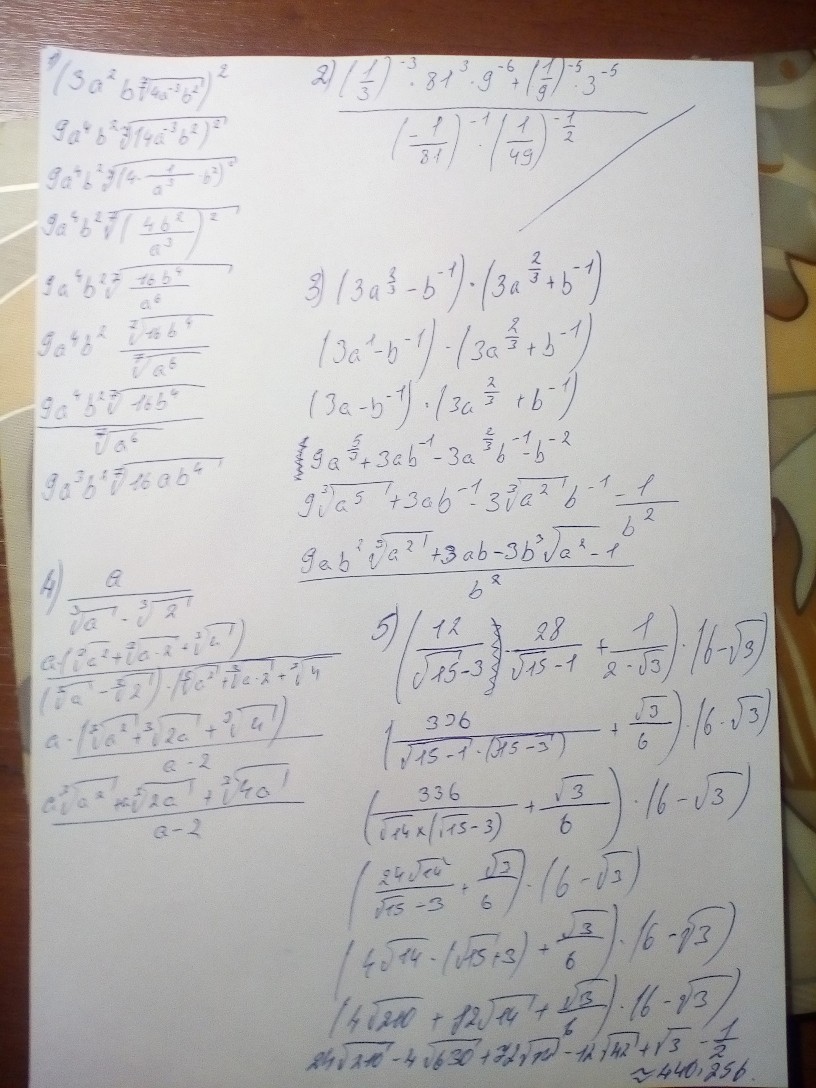 1) (3a² b ⁷√(4a⁻³b²))²
9a⁴b² ⁷√((4a⁻³b²)²)
9a⁴b² ⁷√((4·1/a³·b²)²)
9a⁴b² ⁷√((4b²/a³)²)
9a⁴b² ⁷√(16b⁴/a⁶)
9a⁴b² ⁷√(16b⁴)/⁷√(a⁶)
9a⁴b² ⁷√(16b⁴)/⁷√(a⁶)
9a³b² ⁷√(16ab⁴)
2) ((1/3)⁻³ · 81³ · 9⁻⁶ + (1/9)⁻⁵ · 3⁻⁵)/((-1/81)⁻¹ · (1/49)^(-1/2))
3) (3a^(3/3) - b⁻¹) · (3a^(2/3) + b⁻¹)
(3a¹ - b⁻¹) · (3a^(2/3) + b⁻¹)
(3a - b⁻¹) · (3a^(2/3) + b⁻¹)
9a^(5/3) + 3ab⁻¹ - 3a^(2/3) b⁻¹ - b⁻²
9 ³√(a⁵) + 3ab⁻¹ - 3 ³√(a²) b⁻¹ - 1/b²
(9ab² ³√(a²) + 3ab - 3b ³√(a²) - 1)/b²
4) a/(³√a - ³√2)
a·(³√(a²) + ³√(a·2) + ³√4)/((³√a - ³√2)·(³√(a²) + ³√(a·2) + ³√4
a·(³√(a²) + ³√(2a) + ³√4)/(a-2)
(a ³√(a²) + a ³√(2a) + ³√(4a))/(a-2)
5) (12/(√15-3) · 28/(√15-1) + 1/(2-√3)) · (6-√3)
(336/(√15-1·(√15-3)) + √3/6) · (6-√3)
(336/(√14×(√15-3)) + √3/6) · (6-√3)
(24√14/(√15-3) + √3/6) · (6-√3)
(4√14 · (√15+3) + √3/6) · (6-√3)
(4√210 + 12√14 + √3/6) · (6-√3)
24√210 - 4√630 + 72√14 - 12√42 + √3 - 1/2
≈ 440,256.